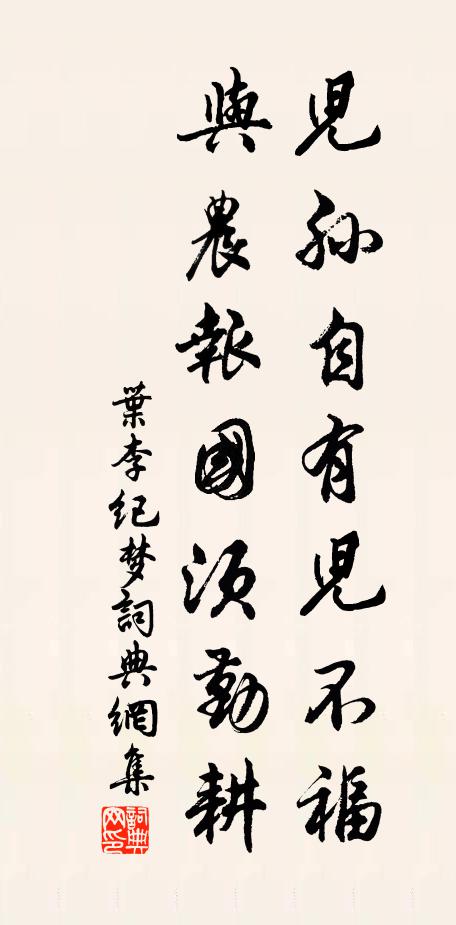 児孫自有児不福
與農報國須勤耕
葉李纪梦詞典網集
詞典网印